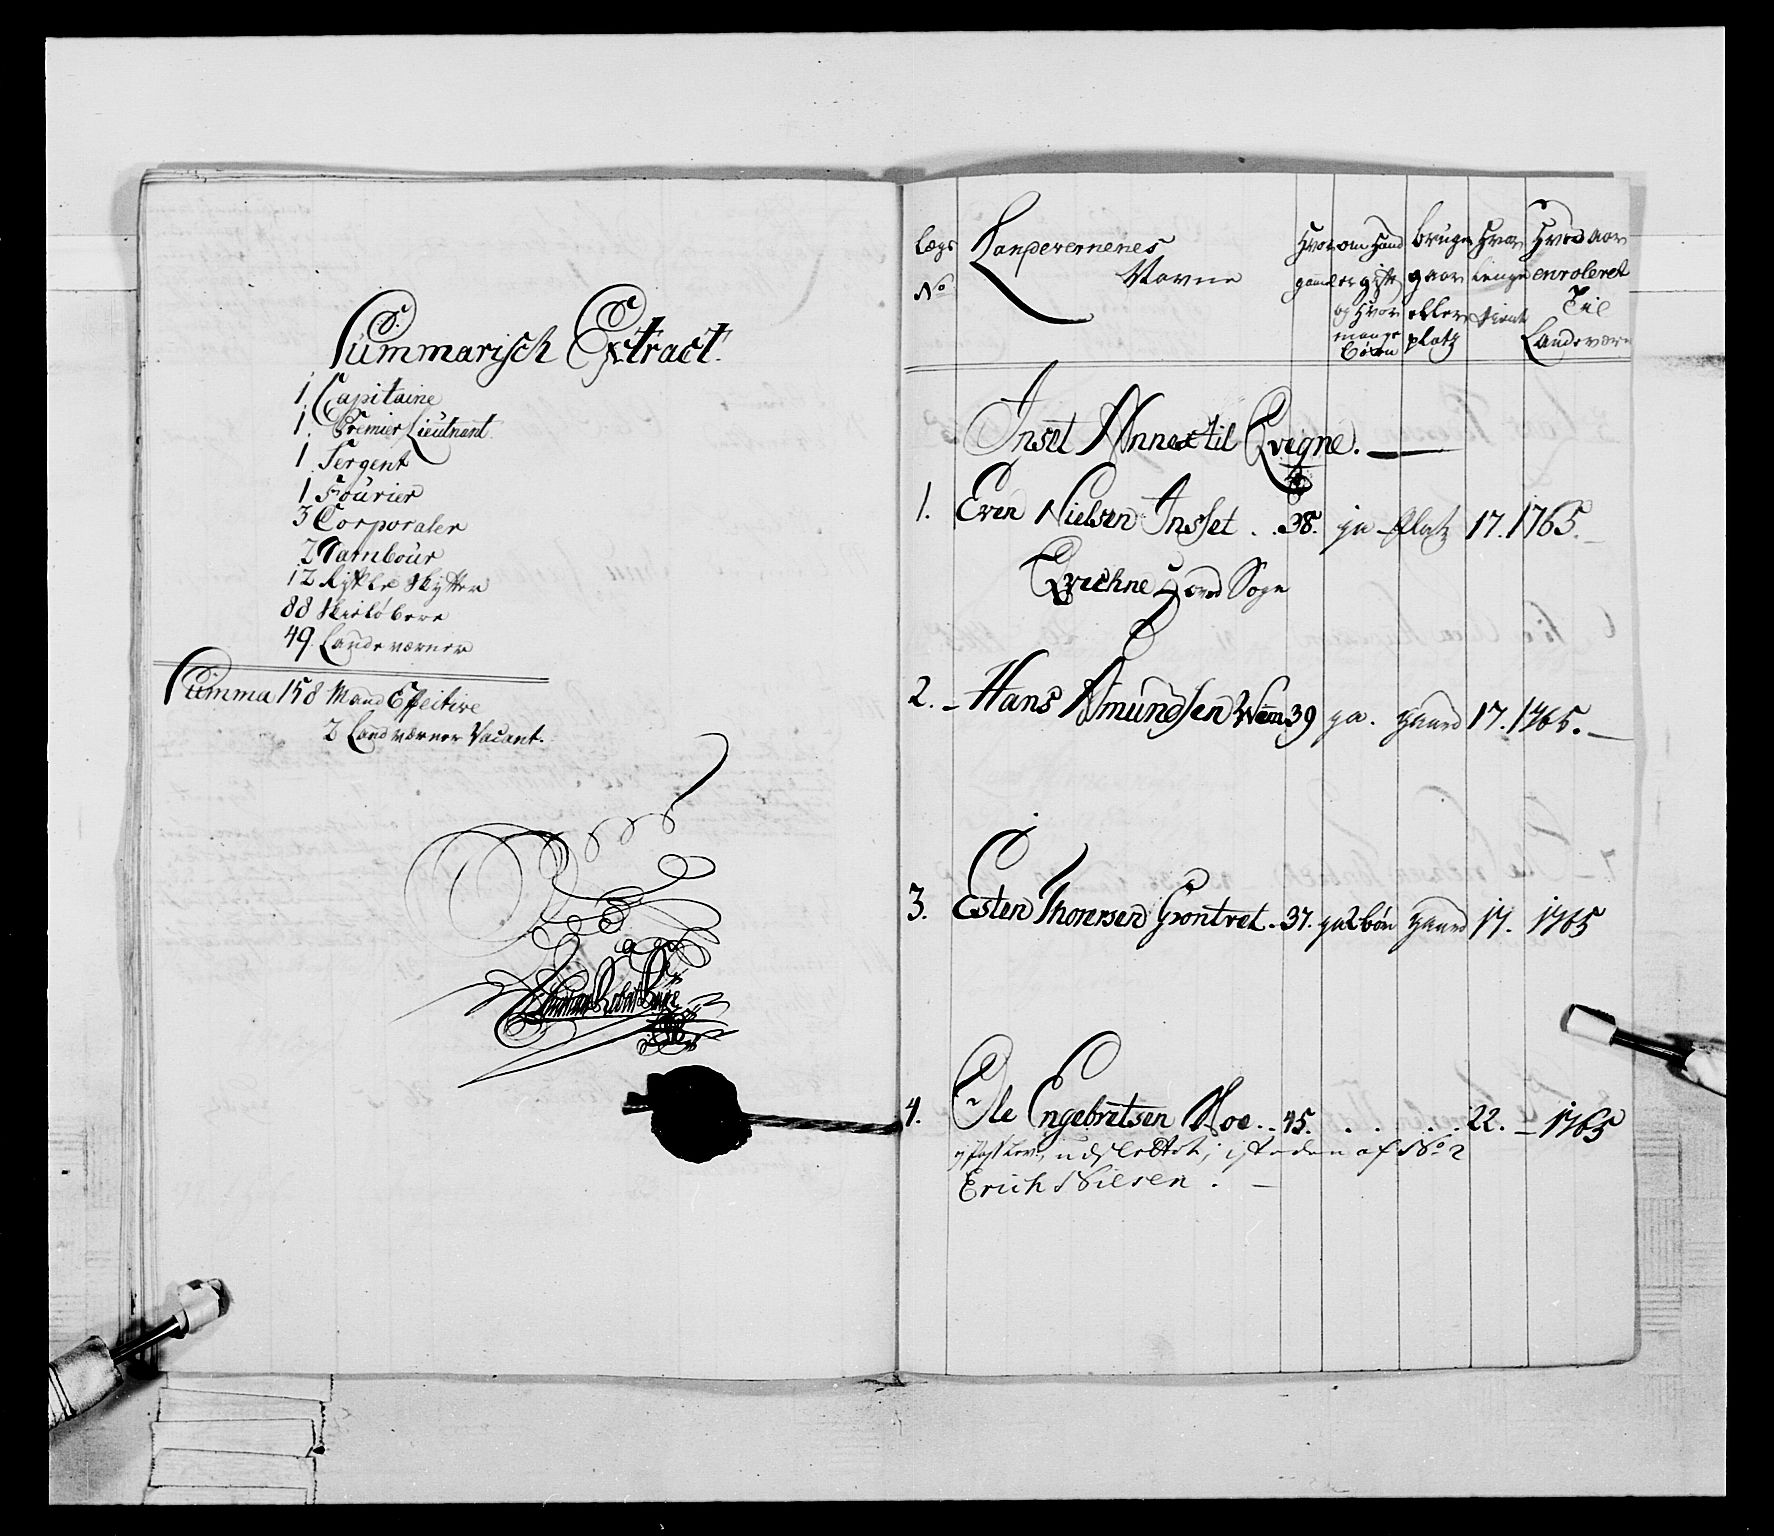 Summarisch Extract.
1. Capitaine
1. Premier Lieutnant
1 Sergent
1 Fourier
3 Corporaler
2 Tambour
12 Rykle Skytter
88 Skilöbere
49. Landeværner
Summa 158 Mand Effective
2 Landværner Vacant.
Lægs No
Landverernenes Navne
Hvor gaml
om Hand er gift og hvor mange Börn
bruger gaar eller platz
Hvor lenge tient
Hvad aar enroleret Til Landeværn
Inset Annex til Qvegne.
1. Even Nielsen Insset . . 38. ja platz 17. 1765.
Qvichne Hoved Sogn
2. Hans Amundsen Næm 39 ja. gaard 17. 1765.
3. Esten Thorersen Grontret . 37. ja 2 börn gaard 17. 1765
4. Ole Engebretsen Moe . . 45. . . . . . 22. 1765
udslettet, isteden af No 2
Erich Nilsen .